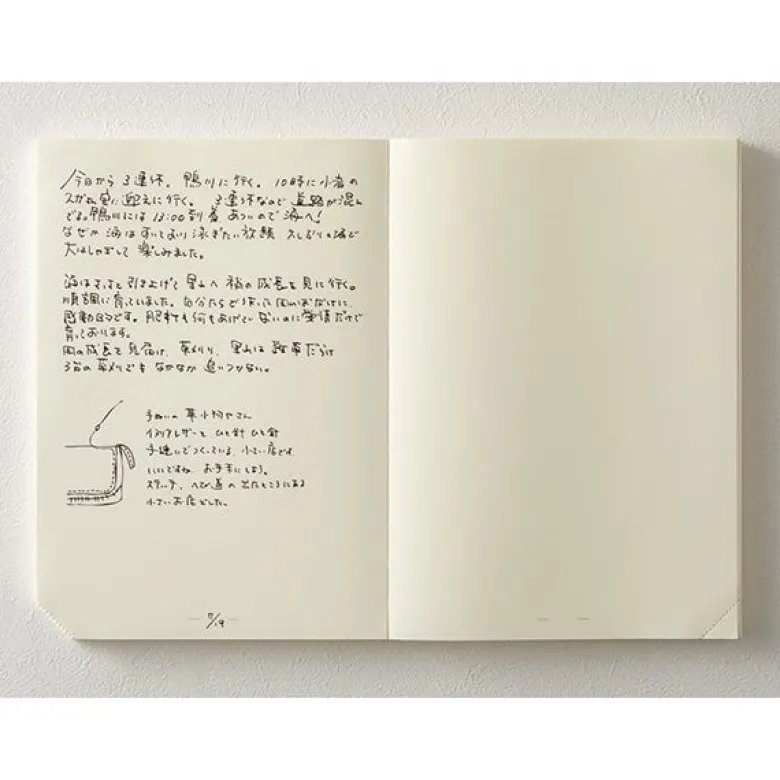 今日から3連休。鴨川に行く。10時に小岩の
迎えに行く。3連休なので道路が混ん
でる。鴨川には13:00到着 あついので海へ!
なぜか海はすいており泳ぎたい放題 久しぶりの海で
大はしゃぎして楽しみました。
海はさっさと引き上げて里山へ 稲の成長を見に行く。
順調に育っていました。自分たちで作った田んぼだけに、
感動的です。肥料も何もあげていないのに愛情だけで
育っております。
田の成長を見届け、草刈り、里山は雑草だらけ
3台の草刈りでもなかなか追いつかない。
手ぬいの革小物やさん
イタリアレザーと、ひと針ひと針
手縫いでつくっている、小さい店です
いいですね、お手本にしよう。
ステッチ、へび道の出たところにある
小さいお店でした。
7/19